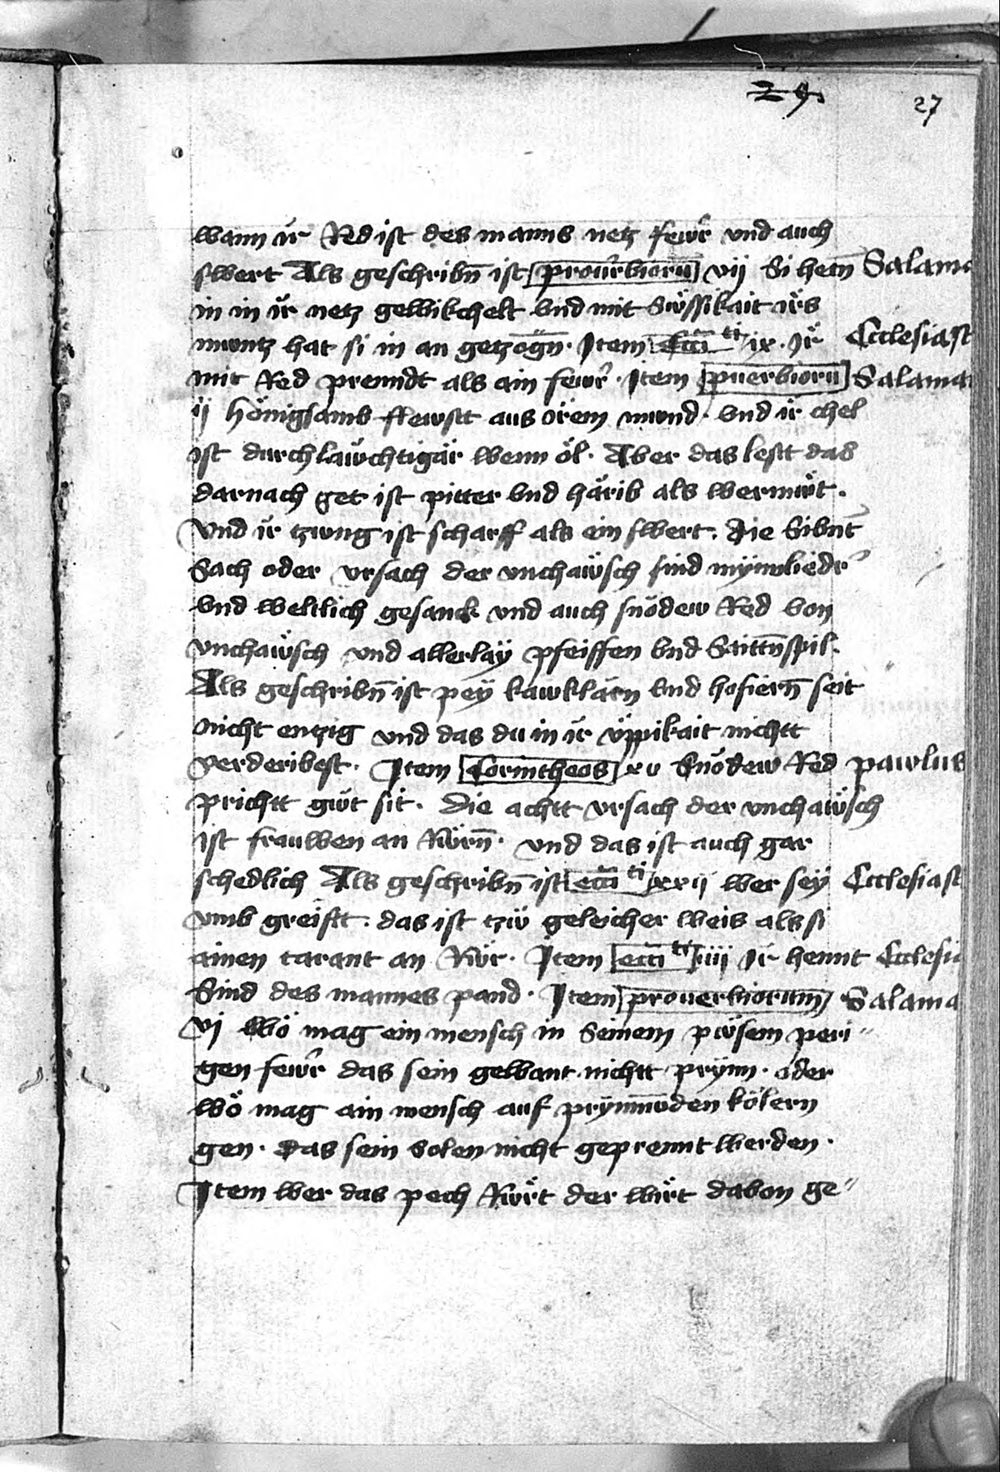 29 27
wann ir Red ist des manns netz fewr̄ vnd auch
swert Als geschribn̄ ist prouerbiorū vij Si hetn̄ Salamo
in in ir netz gewikchelt vnd mit Süssikait irs
muntz hat si in an getzogn̄. Item Ecciti ix. Ir Ecclesiast
mit Red prenndt als ain fewr̄. Item puerbiorū Salamo
ij Hönigsamb flewstt aus örem mund. vnd ir chel
ist durchläwchtigär wenn öl. Aber das lestt das
darnach get ist pitter vnd härib als wermüt.
Vnd ir tzung ist scharff als ein swert. Die Sibnt̄
Sach oder vrsach der vnchawsch sind mynnliedr̄
vnd weltlich gesanck vnd auch snödew Red von
vnchawsch vnd allerlay pfeiffen vnd Saittn̄spil.
Als geschribn̄ ist pey kawklärn vnd hofiern̄ seit
nicht entzig vnd das du in ir vppikait nichtt
verderibest. Item Corintheos xv Snödew Red pawlus
prichtt güt sit. Die achtt vrsach der vnchawsch
ist frauwen an Rürn̄. vnd das ist auch gar
schedlich Als geschribn̄ ist ecciti xxij wer sey Ecclesiast
vmb greiftt. das ist tzw geleicher weis als si
ainen tarant an Rür. Item ecciti iiij Ir hennt Ecclesi
Sind des mannes pand. Item prouerbiorum Salamo
vj Wö mag ein mensch in Seinem püsem peri〃
gen fewr̄ das sein gewant nichtt prynn. oder
wö mag ain mensch auf prynnunden kölern
gen. Das sein solen nicht geprennt werden.
Item wer das pech Rürt der wirt davon ge〃